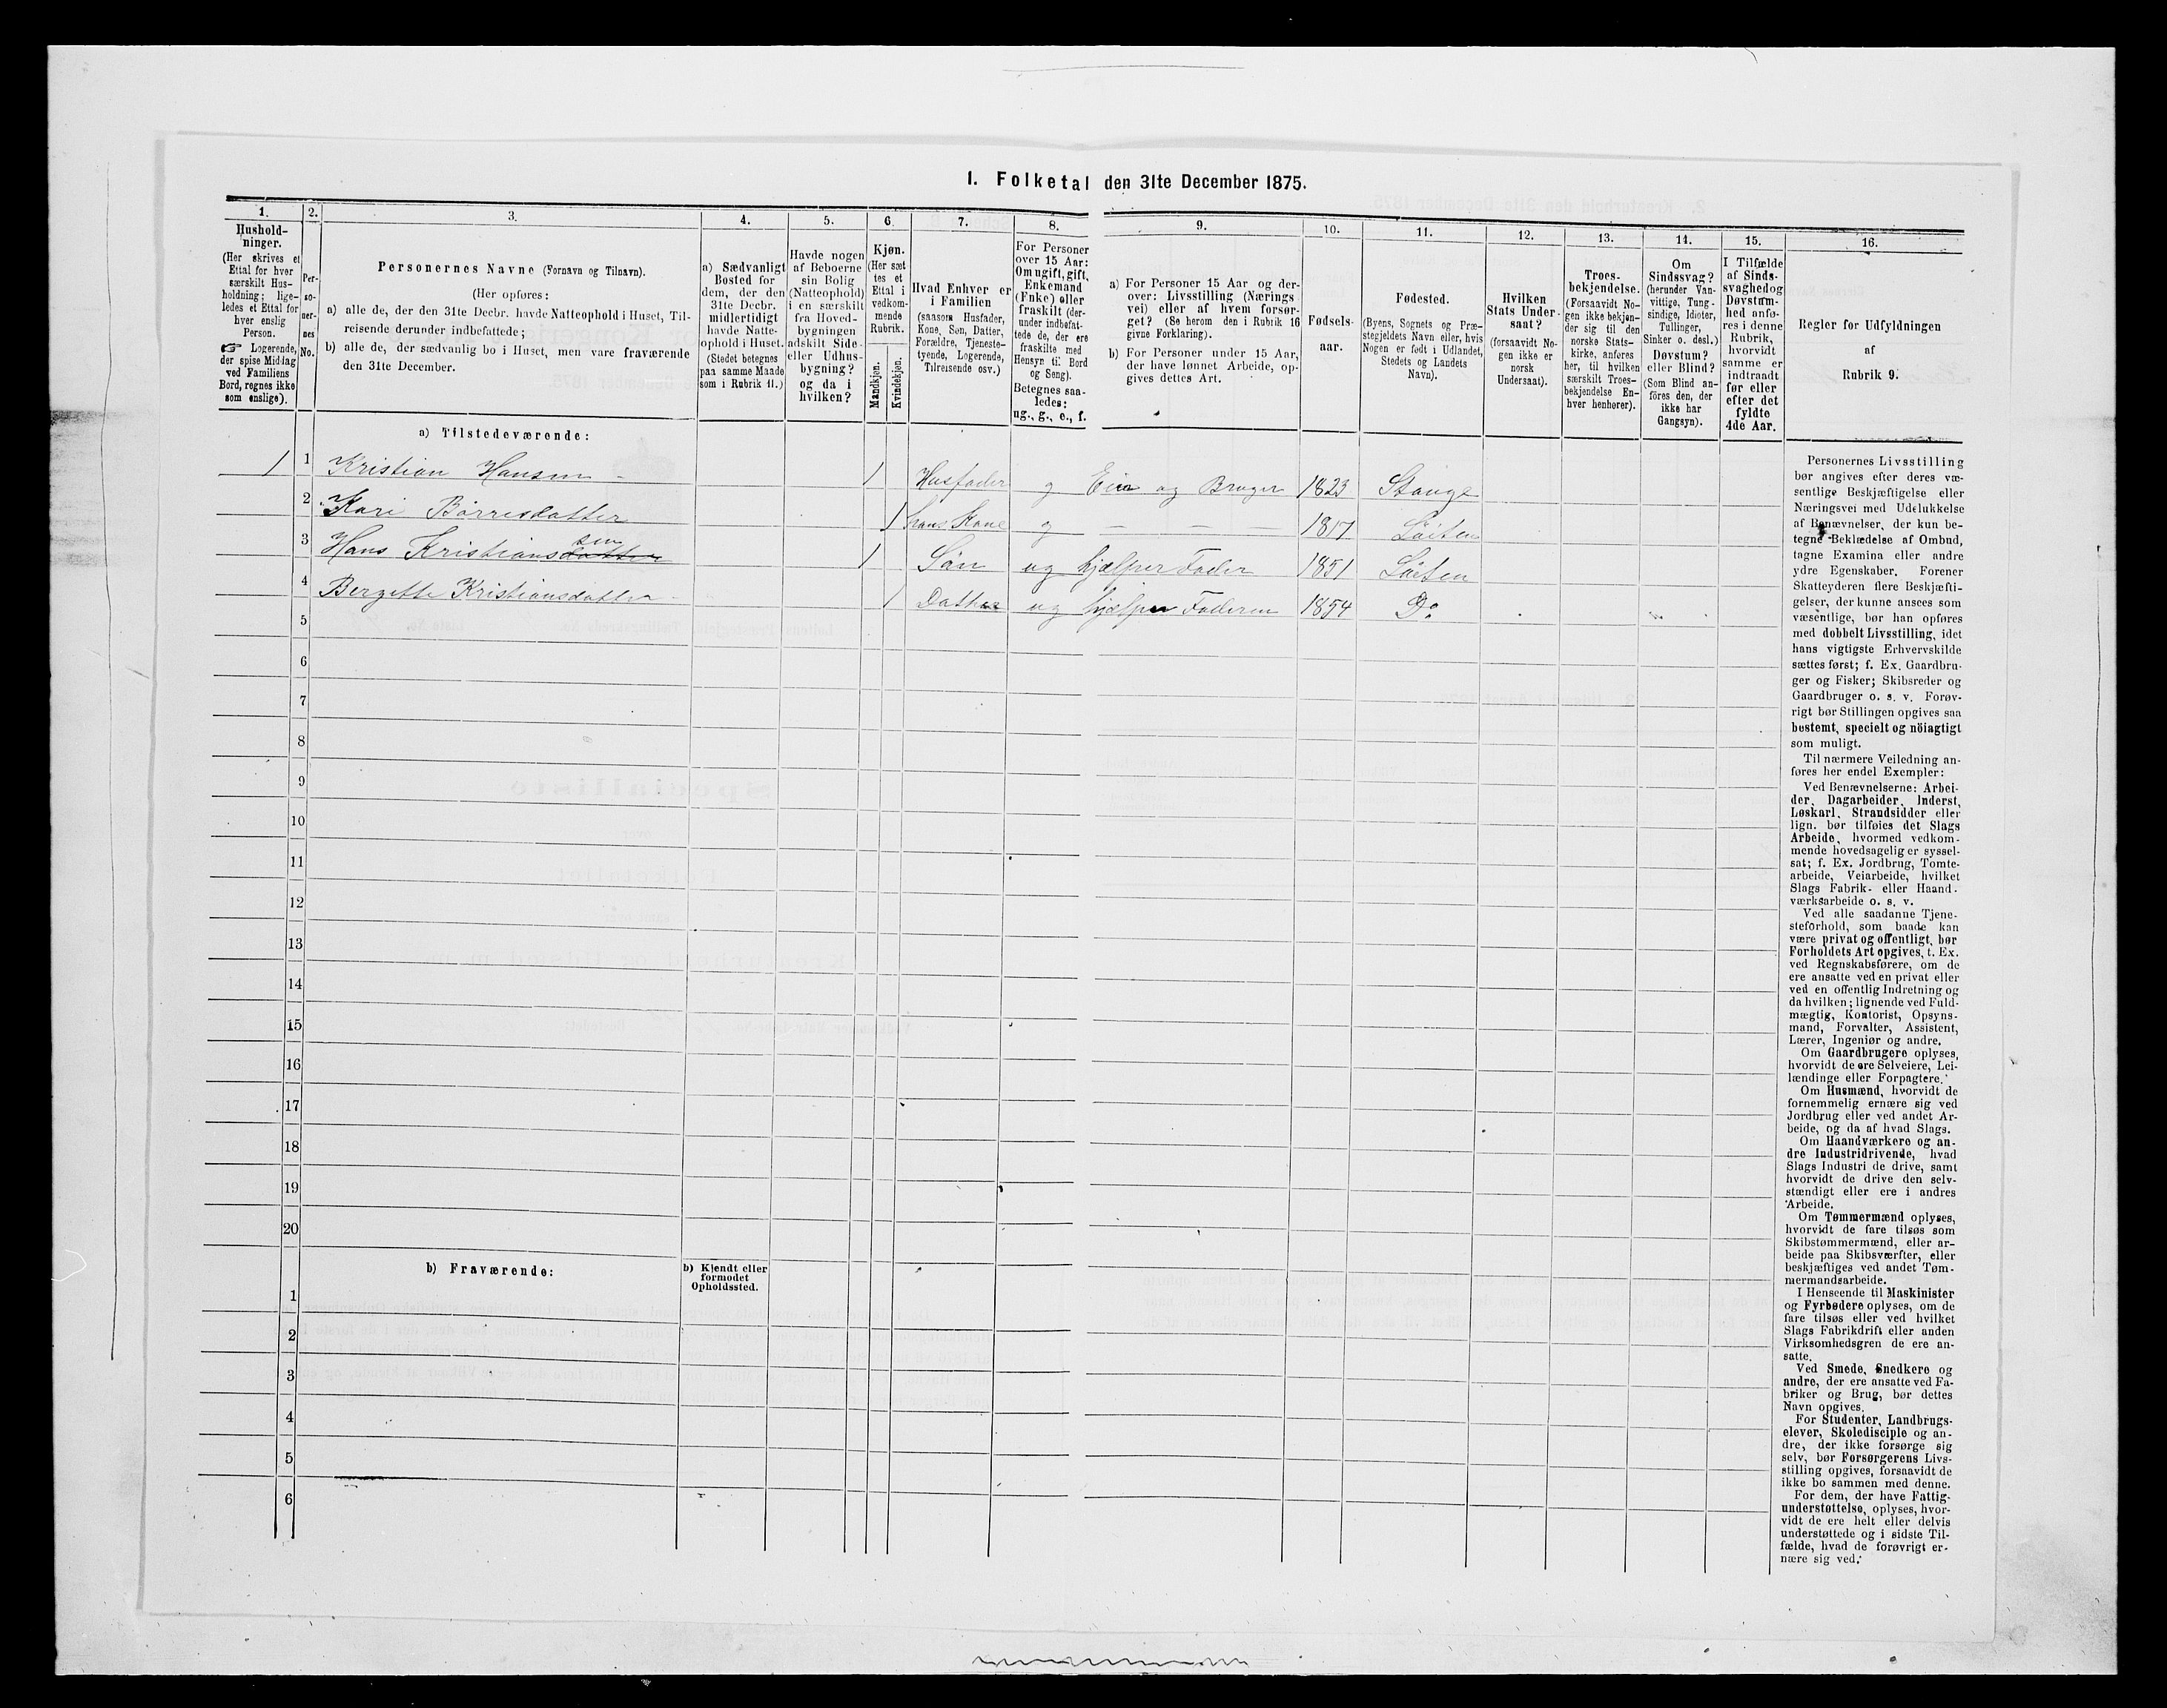 1. Folketal den 31te December 1875.
1. 2. 3. 4. 5. 6. 7. 8. 9. 10. 11. 12. 13. 14. 15. 16.
Hushold-
ninger.
(Her skrives et
Ettal for hver
særskilt Hus-
holdning; lige-
ledes et Ettal for
hver enslig
Person.
☞ Logerende,
der spise Middag
ved Familiens
Bord, regnes ikke
som enslige).
Per-
so-
ner-
nes
No.
Personernes Navne (Fornavn og Tilnavn).
(Her opføres:
a) alle de, der den 31te Decbr. havde Natteophold i Huset, Til-
reisende derunder indbefattede;
b) alle de, der sædvanlig bo i Huset, men vare fraværende
den 31te December.
a) Sædvanligt
Bosted for
dem, der den
31te Decbr.
midlertidigt
havde Natte-
ophold i Huset.
(Stedet betegnes
paa samme Maade
som i Rubrik 11.)
Havde nogen
af Beboerne
sin Bolig
(Natteophold)
i en særskilt
fra Hoved-
bygningen
adskilt Side-
eller Udhus-
bygning?
og da i
hvilken?
Kjøn.
(Her sæt
tes et
Ettal i
vedkom-
mende
Rubrik.
Mandkjøn.
Kvindekjøn.
Hvad Enhver er
i Familien
(saasom Husfader,
Kone, Søn, Datter,
Forældre, Tjeneste-
tyende, Logerende,
Tilreisende osv.)
For Personer
over 15 Aar:
Om ugift, gift,
Enkemand
(Enke) eller
fraskilt (der-
under indbefat-
tede de, der ere
fraskilte med
Hensyn til Bord
og Seng).
Betegnes saa-
ledes:
ug., g., e., f.
a) For Personer 15 Aar og der-
over: Livsstilling (Nærings
vei) eller af hvem forsør-
get? (Se herom den i Rubrik 16
givne Forklaring).
b) For Personer under 15 Aar,
der have lønnet Arbeide, op-
gives dettes Art.
Fødsels-
aar.
Fødested.
(Byens, Sognets og Præ-
stegjeldets Navn eller, hvis
Nogen er født i Udlandet,
Stedets og Landets
Navn).
Hvilken
Stats Under-
saat?
(forsaavidt No-
gen ikke er
norsk
Undersaat).
Troes-
bekjendelse.
(Forsaavidt No-
gen ikke bekjen-
der sig til den
norske Stats-
kirke, anføres
her, til hvilken
særskilt Troes-
bekjendelse En-
hver henhører).
Om
Sindssvag?
(herunder Van-
vittige, Tung-
sindige, Idioter,
Tullinger,
Sinker o. desl.)
Døvstum?
eller Blind?
(Som Blind an-
føres den, der
ikke har
Gangsyn).
I Tilfælde
af Sinds-
svaghed og
Døvstum-
hed anfø-
res i denne
Rubrik,
hvorvidt
samme er
indtraadt
før eller
efter det
fyldte
4de Aar.
Regler for Udfyldningen
af
Rubrik 9.
a) Tilstedeværende:
1 1 Kristian Hansen 1 Husfader g Eier og Bruger 1823 Stange
2 Kari Börresdatter 1 hans Kone g — — — 1817 Löiten
sen
3 Hans Kristiansdatter 1 Sön ug hjælper Fader 1851 Löiten
4 Bergette Kristiansdatter 1 Datter ug hjelper Faderen 1854 Do
5
6
7
8
9
10
11
12
13
14
15
16
17
18
19
20
b) Fraværende:
b) Kjendt eller
formodet
Opholdssted.
1
2
3
4
5
6
Personernes Livsstilling
bør angives efter deres væ-
sentlige Beskjæftigelse eller
Næringsvei med Udelukkelse
af Benævnelser, der kun be-
tegne Beklædelse af Ombud,
tagne Examina eller andre
ydre Egenskaber. Forener
Skatteyderen flere Beskjæfti-
gelser, der kunne ansees som
væsentlige, bør han opføres
med dobbelt Livsstilling, idet
hans vigtigste Erhvervskilde
sættes først; f. Ex. Gaardbru-
ger og Fisker; Skibsreder og
Gaardbruger o. s. v. Forøv-
rigt bør Stillingen opgives saa
bestemt, specielt og nöiagtigt
som muligt.
Til nærmere Veiledning an-
føres her endel Exempler:
Ved Benævnelserne: Arbei-
der, Dagarbeider, Inderst,
Løskarl, Strandsidder eller
lign. bør tilføies det Slags
Arbeide, hvormed vedkom-
mende hovedsagelig er syssel-
sat; f. Ex. Jordbrug, Tomte-
arbeide, Veiarbeide, hvilket
Slags Fabrik- eller Haand-
værksarbeide o. s. v.
Ved alle saadanne Tjene-
steforhold, som baade kan
være privat og offentligt, bør
Forholdets Art opgives, t. Ex.
ved Regnskabsførere, om de
ere ansatte ved en privat eller
ved en offentlig Indretning og
da hvilken; lignende ved Fuld-
mægtig, Kontorist, Opsyns-
mand, Forvalter, Assistent,
Lærer, Ingeniør og andre.
Om Gaardbrugere oplyses,
hvorvidt de ere Selveiere, Lei-
lændinge eller Forpagtere.
Om Husmænd, hvorvidt de
fornemmelig ernære sig ved
Jordbrug eller ved andet Ar-
beide, og da af hvad Slags.
Om Haandværkere og an-
dre Industridrivende, hvad
Slags Industri de drive, samt
hvorvidt de drive den selv-
stændigt eller ere i andres
Arbeide.
Om Tømmermænd oplyses,
hvorvidt de fare tilsøs som
Skibstømmermænd, eller ar-
beide paa Skibsværfter, eller
beskjæftiges ved andet Tøm-
mermandsarbeide.
I Henseende til Maskinister
og Fyrbødere oplyses, om de
fare tilsøs eller ved hvilket
Slags Fabrikdrift eller anden
Virksomhedsgren de ere an-
satte.
Ved Smede, Snedkere og
andre, der ere ansatte ved Fa-
briker og Brug, bør dettes
Navn opgives.
For Studenter, Landbrugs-
elever, Skoledisciple og an-
dre, der ikke forsørge sig
selv, bør Forsørgerens Livs-
stilling opgives, forsaavidt de
ikke bo sammen med denne.
For dem, der have Fattig-
understøttelse, oplyses, hvor-
vidt de ere helt eller delvis
understøttede og i sidste Til-
fælde, hvad de forøvrigt er-
nære sig ved.